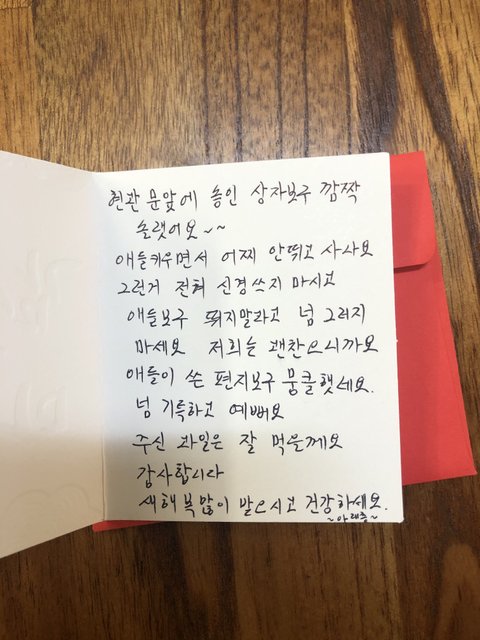 현관 문앞에 송인 상자보구 깜짝
솔랫어요~~
애들키우면서 어찌 안뛰고 사나요
그런거 전혀 신경쓰지 마시고
애들보구 뛰지말라고 넘 그러지
마세요 저희는 괜찬으니까요
애들이 쓴 편지보구 뭉클햇세요.
넘 기특하고 예뻐요
주신 과일은 잘 먹을께요
감사합니다
새해 복많이 받으시고 건강하세요.
~아래층~